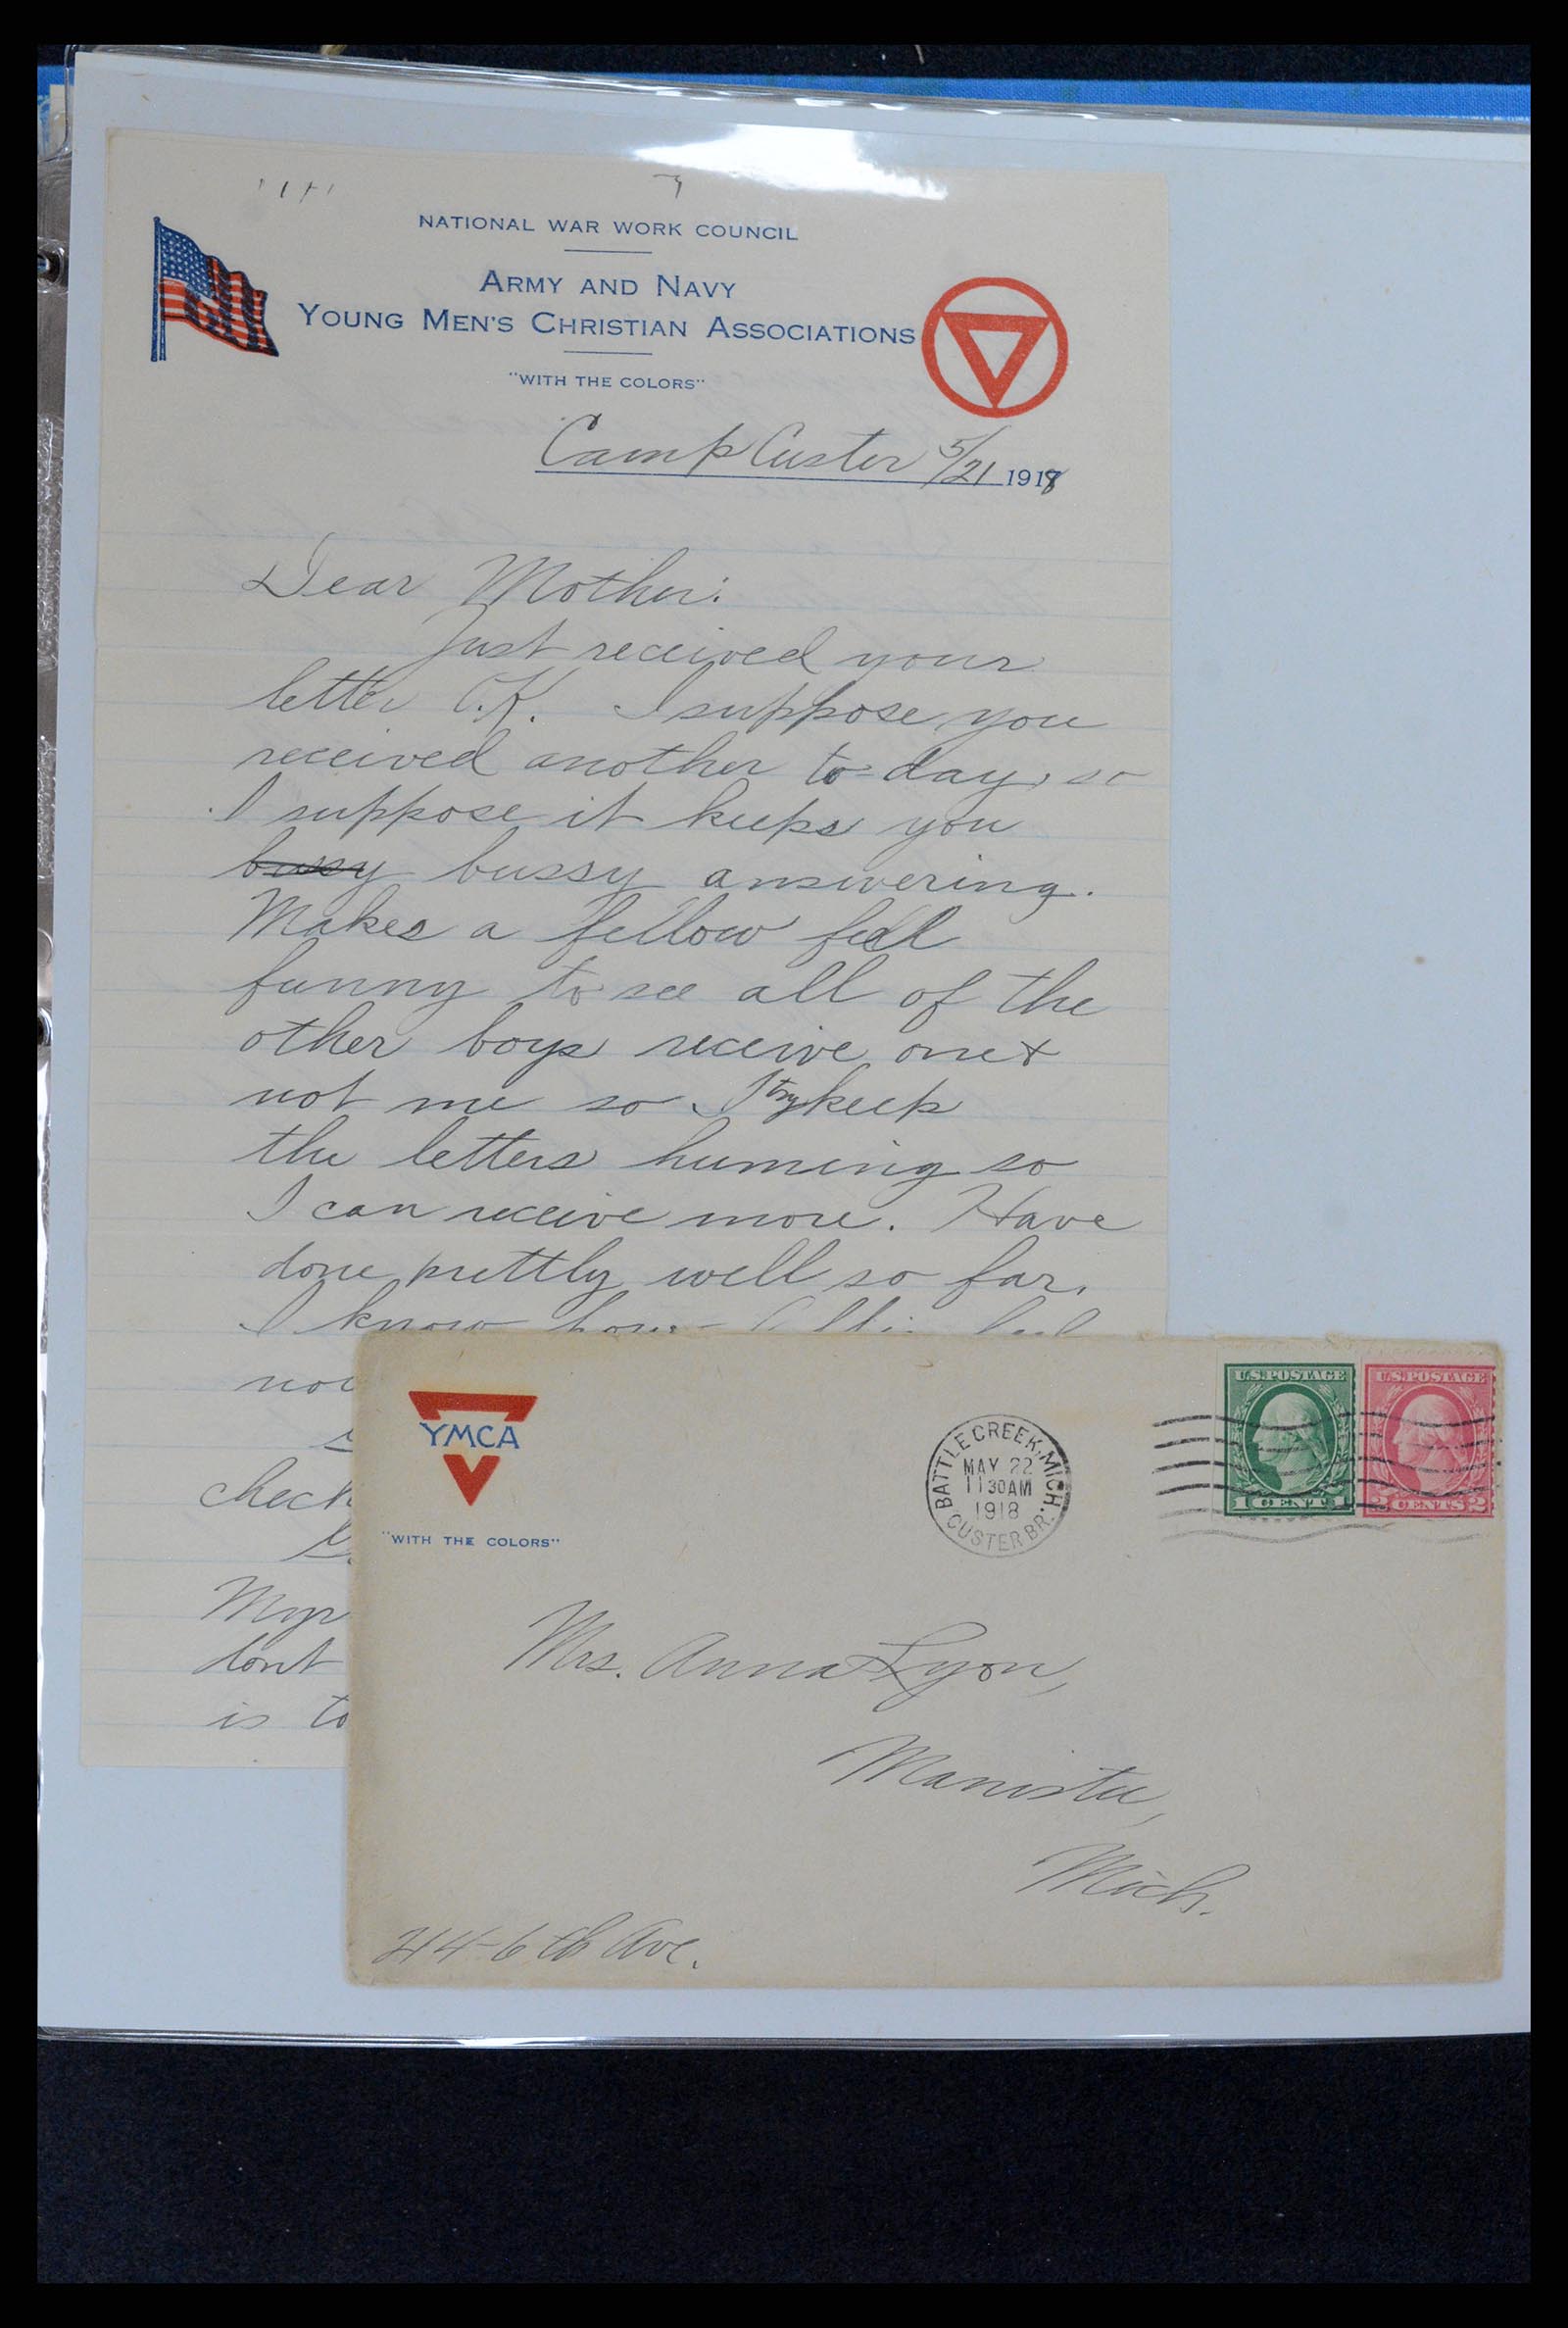 NATIONAL WAR WORK COUNCIL
ARMY AND NAVY
YOUNG MEN'S CHRISTIAN ASSOCIATIONS
"WITH THE COLORS"
Camp Custer 5/21 1918
Dear Mother:
Just received your
letter O.K. I suppose you
received another to-day, so
I suppose it keeps you
busy bussy answering.
Makes a fellow feel
funny to see all of the
other boys receive one &
not me so I try keep
the letters huming so
I can receive more. Have
done prettly well so far.
I know how
check
dont
is to
YMCA
"WITH THE COLORS"
BATTLE CREEK, MICH.
MAY 22
11 30 AM
1918
CUSTER BR.
U.S. POSTAGE
1 CENT 1
U.S. POSTAGE
2 CENTS 2
Mrs. Anna Lyon,
Manistee,
Mich.
244-6th Ave.